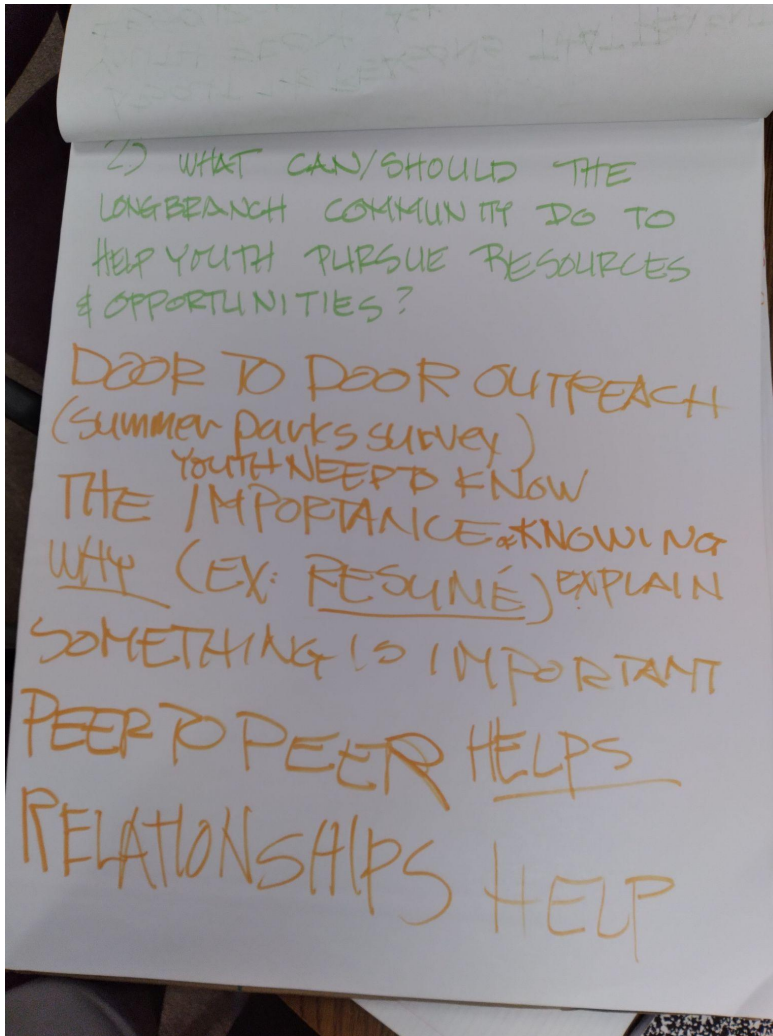 2) WHAT CAN/SHOULD THE
LONGBRANCH COMMUNITY DO TO
HELP YOUTH PURSUE RESOURCES
& OPPORTUNITIES?
DOOR TO DOOR OUTREACH
(summer parks survey)
YOUTH NEED TO KNOW
THE IMPORTANCE & KNOWING
WHY (EX: RESUMÉ) EXPLAIN
SOMETHING IS IMPORTANT
PEER TO PEER HELPS
RELATIONSHIPS HELP